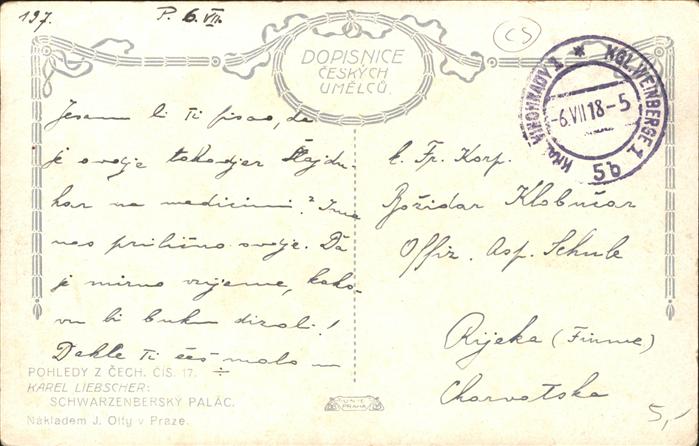 197.
P. 6. VII.
CS
DOPISNICE
ČESKÝCH
UMĚLCŮ.
KRÁL. VINOHRADY 1 * KGL. WEINBERGE 1
-6.VII 18-5
5b
Jesam li ti pisao, da
je ovdje takodjer Štajdu-
har na medicini? Ima
nas prilično ovdje. Da
je mirno vrijeme, kako-
vu bi buku dizali!
Dakle ti ćeš malo
k. Fr. Korp.
Božidar Klobučar
Offiz. Asp. Schule
Rijeka (Fiume)
Chorvatska
POHLEDY Z ČECH. ČÍS. 17.
KAREL LIEBSCHER:
SCHWARZENBERSKÝ PALÁC.
Nákladem J. Otty v Praze.
UNIE
PRAHA
5,-